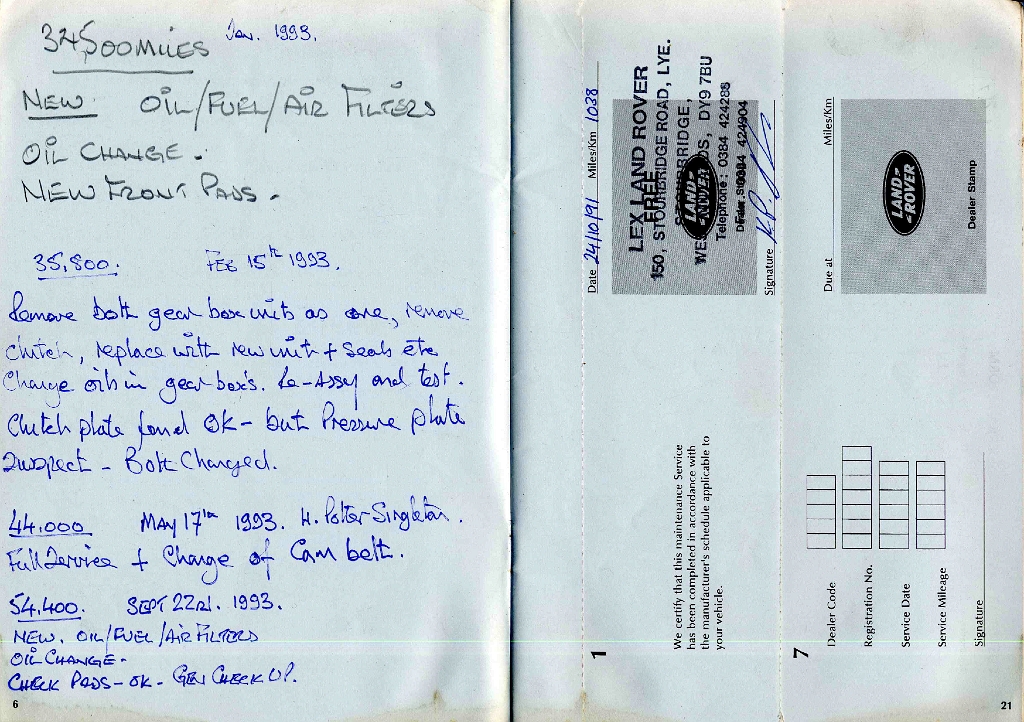 34500 MILES Jan. 1993.
NEW OIL/FUEL/AIR FILTERS
OIL CHANGE.
NEW FRONT PADS.
35,800. FEB 15th 1993.
Remove both gear box units as one, remove
clutch, replace with new unit + seals etc
Change oils in gear box's. Re-Assy and test.
Clutch plate found OK - but Pressure plate
Suspect - Both Changed.
44.000 MAY 17th 1993. H. Potter Singleton.
Full Service + Change of Cam belt.
54,400. SEPT 22nd. 1993.
NEW. OIL/FUEL/AIR FILTERS
OIL CHANGE.
CHECK PADS - OK - GEN CHECK UP.
6
Date 24/10/91 Miles/Km 1038
LEX LAND ROVER
FREE
150, STOURBRIDGE ROAD, LYE.
DY9 7BU
Telephone: 0384 424288
0384 424904
LAND-ROVER
Signature
We certify that this maintenance Service
has been completed in accordance with
the manufacturer's schedule applicable to
your vehicle.
1
Due at Miles/Km
LAND-ROVER
Dealer Stamp
7
Dealer Code
Registration No.
Service Date
Service Mileage
Signature
21